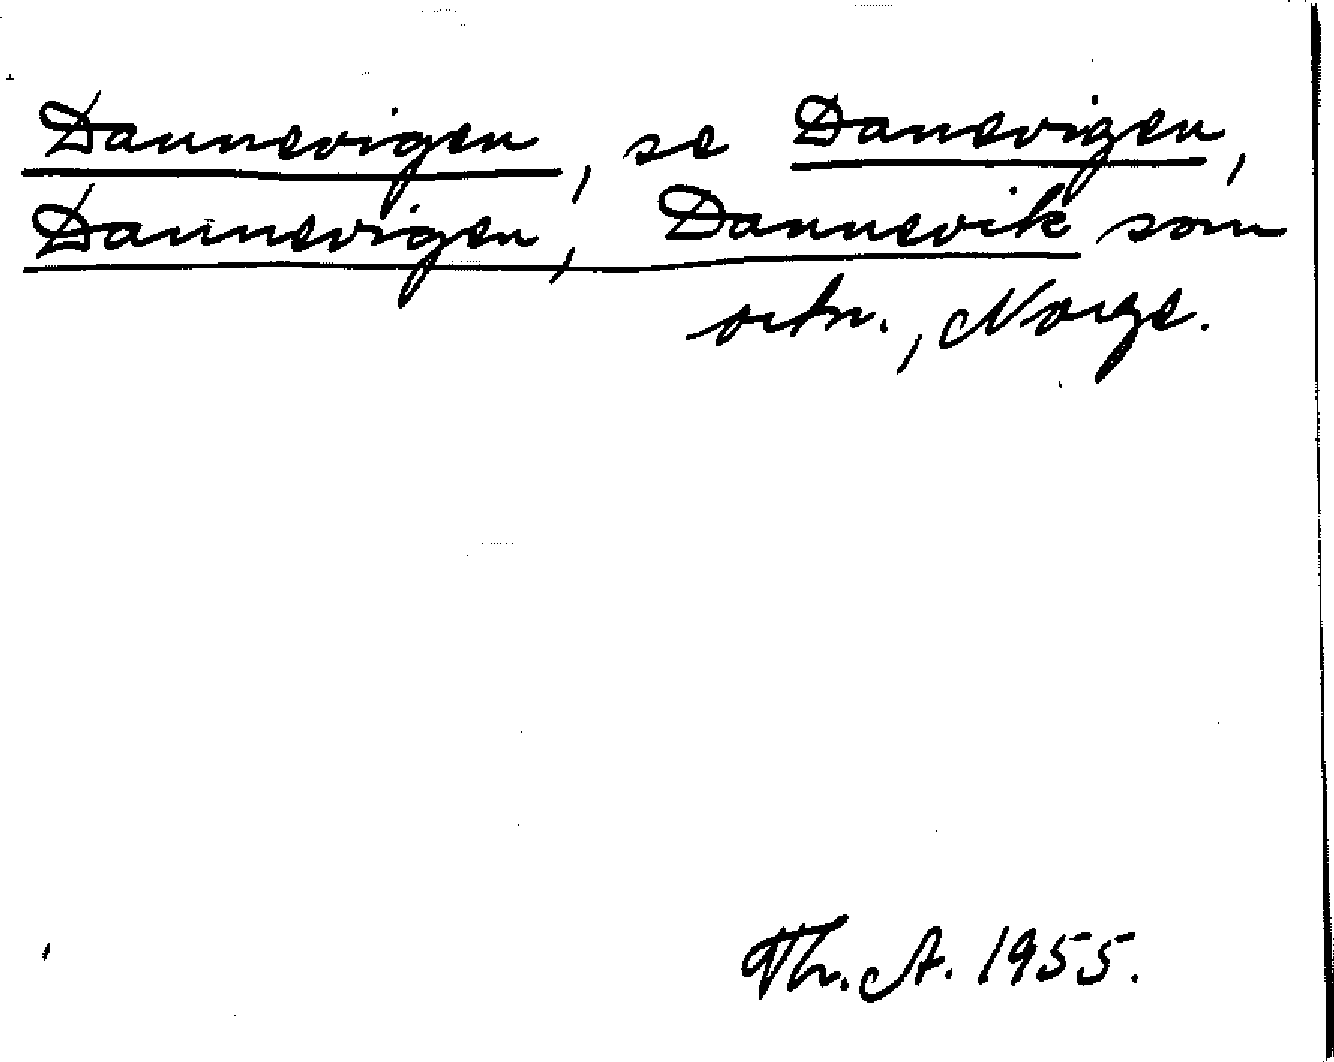 Dannevigen, se Danevigen,
Dannevigen, Dannevik som
ortn., Norge.
Th. A. 1955.